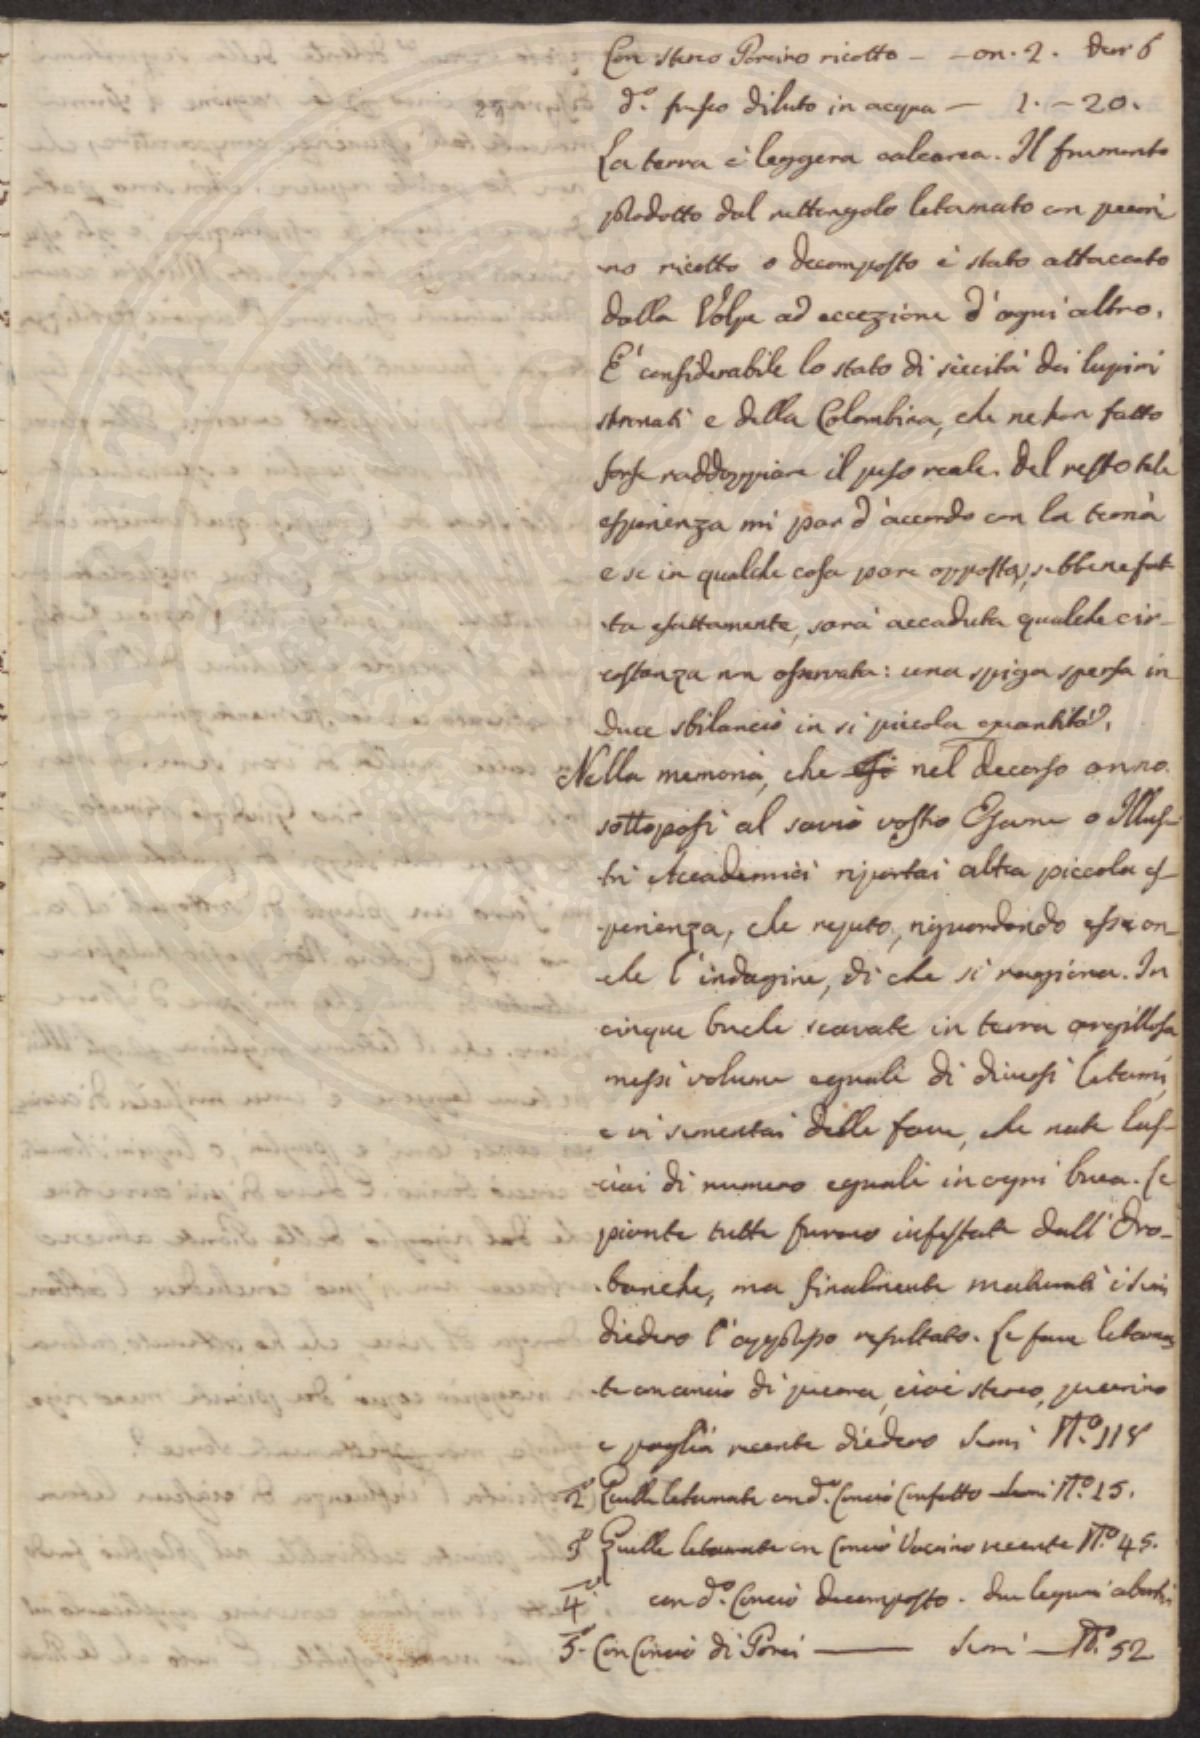 Con sterco Porcino ricotto — — on. 2. den 6
d.º fresco diluto in acqua — 1. — 20.
La terra è leggera calcarea. Il frumento
prodotto dal rettangolo letamato con pecori
no ricotto o decomposto è stato attaccato
dalla Volpe ad eccezione d'ogni altro.
E' considerabile lo stato di siccità dei lupini
strinati e della Colombina, che ne han fatto
forse raddoppiare il peso reale. Del resto tale
esperienza mi par d'accordo con la teoria
e se in qualche cosa pare opposta, sebbene fat
ta esattamente, sarà accaduta qualche cir-
costanza non osservata: una spiga spersa in
duce sbilancio in si piccola quantità.
Nella memoria, che nel decorso anno
sottoposi al savio vostro Esame o Illus-
tri Accademici riportai altra piccola es-
perienza, che reputo, riguardando essa an-
che l'indagine, di che si ragiona. In
cinque buche scavate in terra argillosa
messi volume eguale di diversi letami,
e vi sementai delle fave, che nate las-
ciai di numero eguali in ogni buca. Le
piante tutte furono infestate dall'Oro-
banche, ma finalmente maturati i semi
diedero l'appresso resultato. Le fave letama
te con concio di pecora, cioè sterco pecorino
e paglia recente diedero Semi N.º 118
2.º Quelle letamate con d.º Concio Confatto N.º 15.
3.º Quelle letamate con Concio Vaccino recente N.º 45.
4.º con d.º Concio decomposto. due legumi abortiti
5.º Con Concio di Porci — Semi — N.º 52